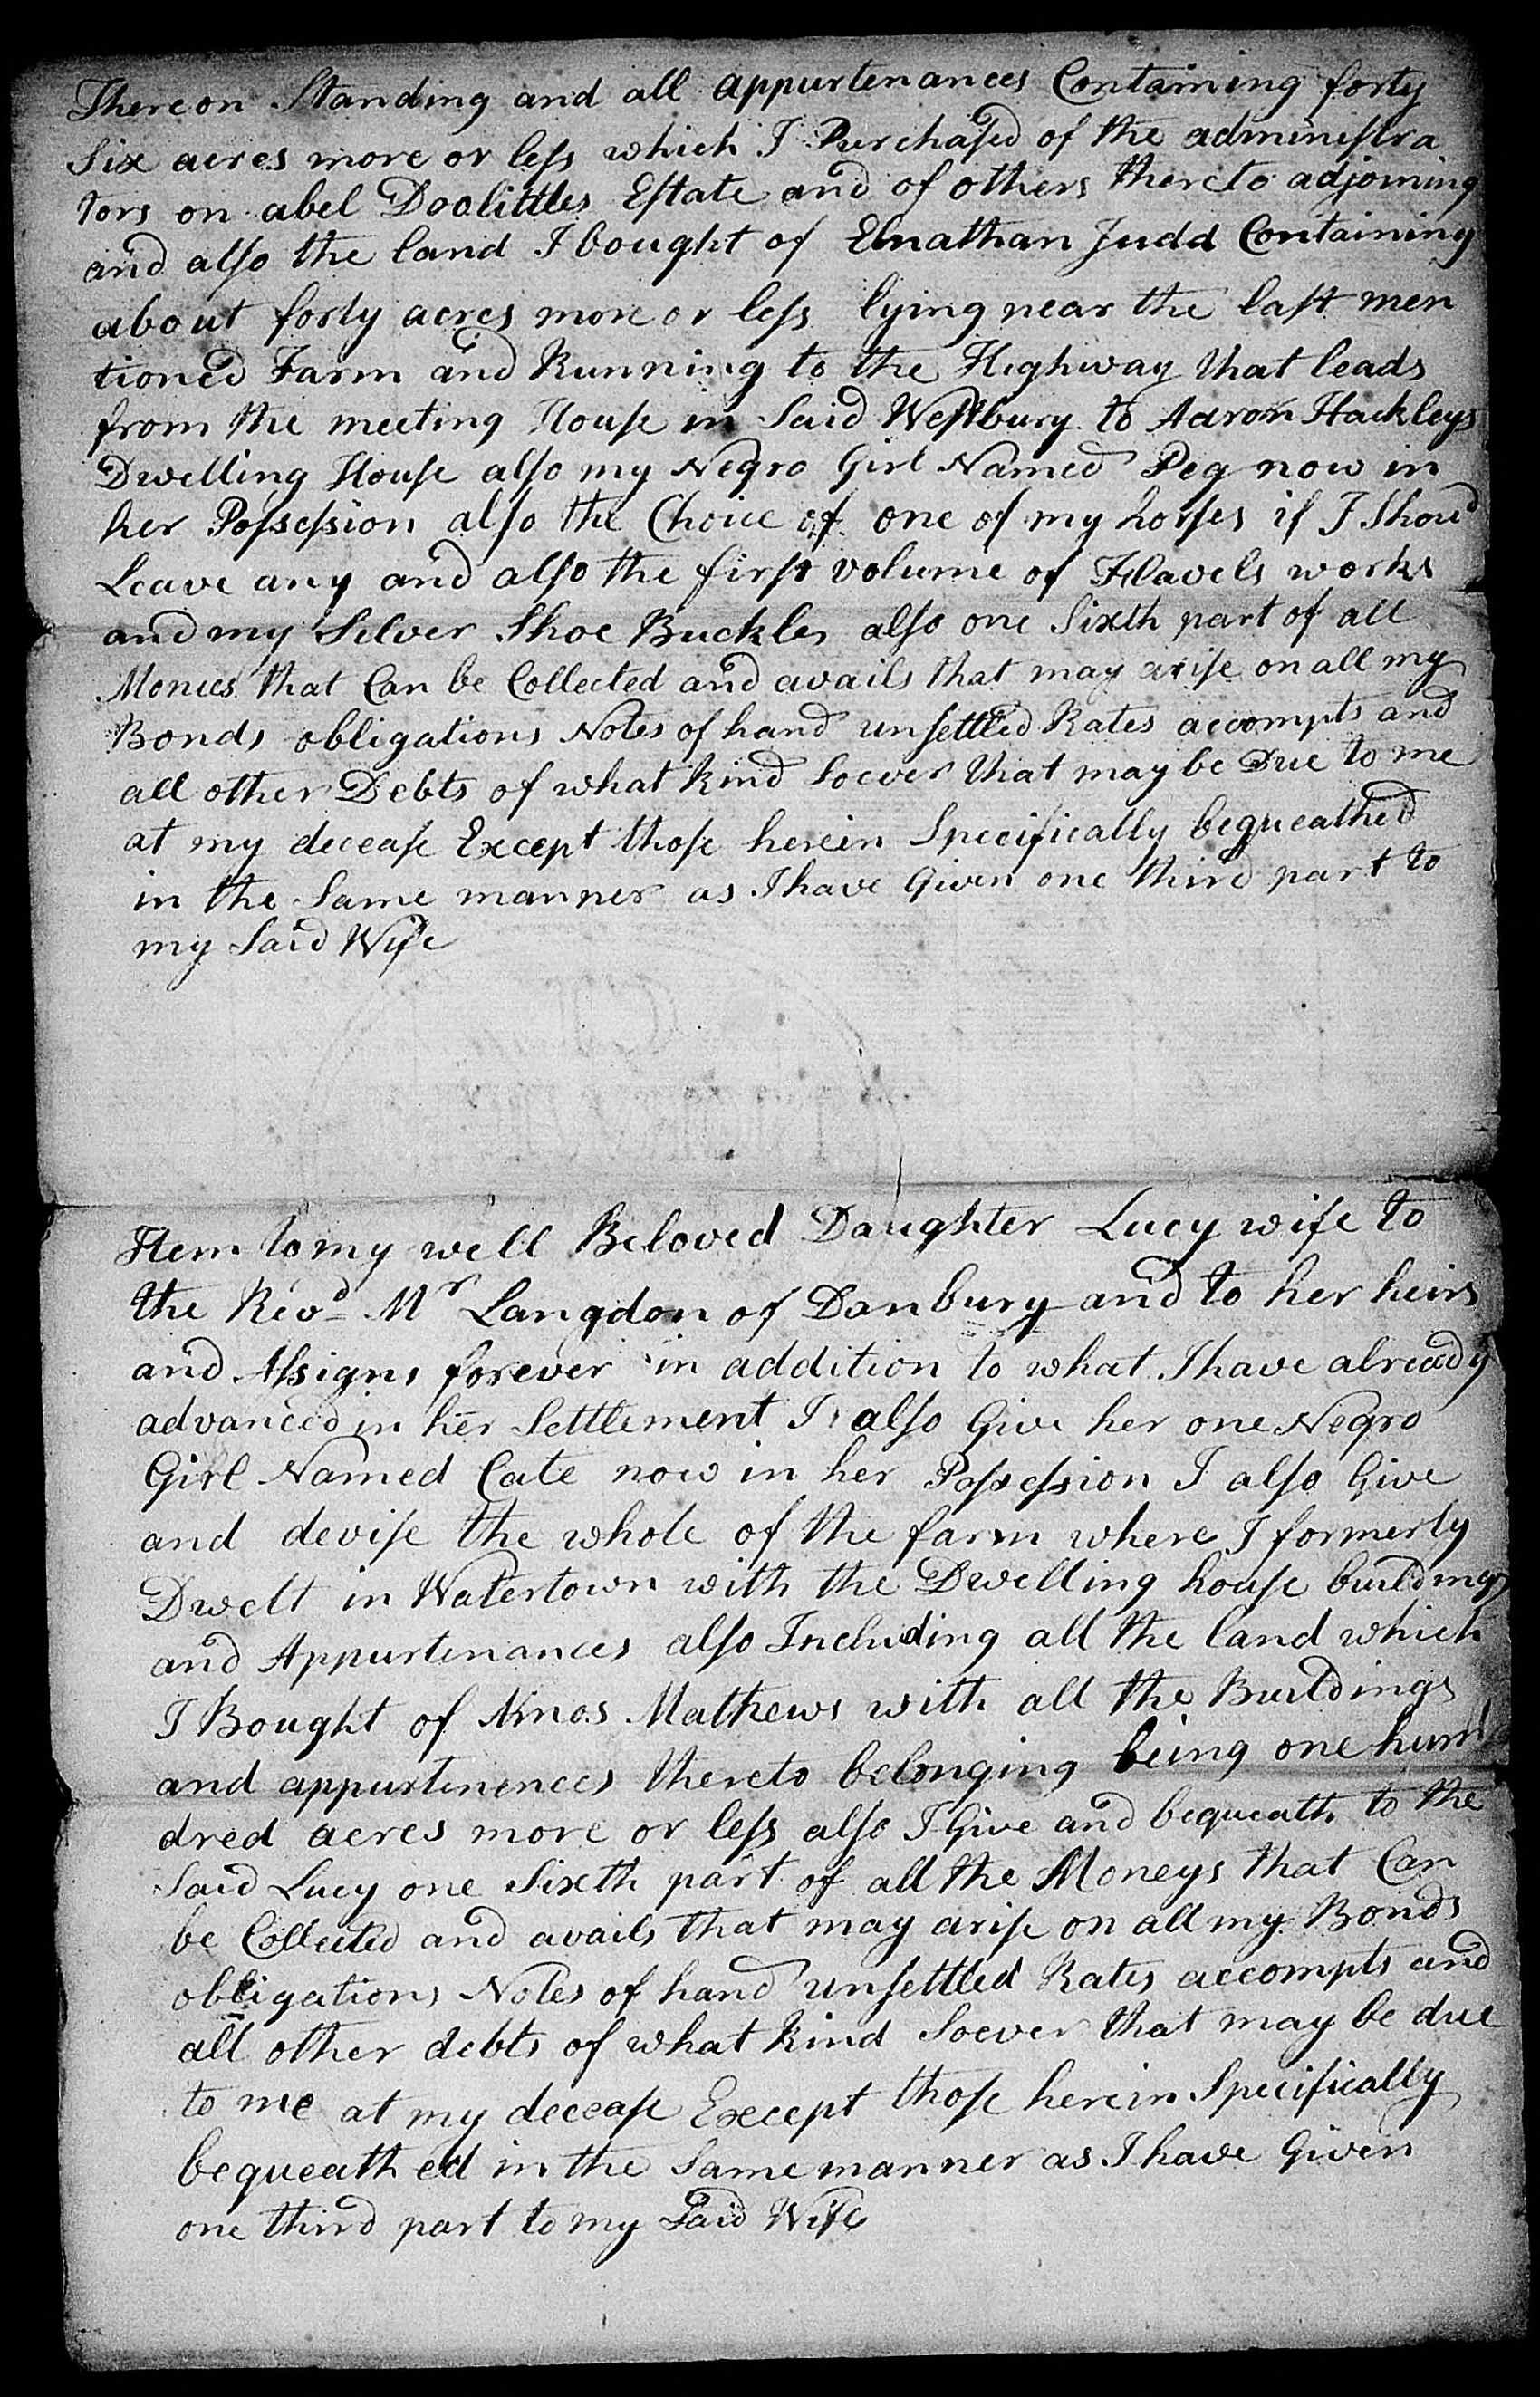 Thereon Standing and all appurtenances Containing forty
Six acres more or leſs which I Purchaſed of the adminiſtra
tors on abel Doolittles Eſtate and of others thereto adjoining
and alſo the land I bought of Elnathan Judd Containing
about forty acres more or leſs lying near the laſt men
tioned Farm and Running to the Highway that leads
from the meeting Houſe in Said Weſtbury to Aaron Hackleys
Dwelling Houſe alſo my Negro Girl Named Peg now in
her Poſseſsion alſo the Choice of one of my horſes if I Shoud
Leave any and alſo the firſt volume of Flavels works
and my Silver Shoe Buckles alſo one Sixth part of all
Monies that Can be Collected and avails that may ariſe on all my
Bonds obligations Notes of hand unſettled Rates accompts and
all other Debts of what kind Soever that may be Due to me
at my deceaſe Except thoſe herein Specifically bequeathed
in the Same manner as I have Given one third part to
my Said Wife
Item to my well Beloved Daughter Lucy wife to
the Revd Mr Langdon of Danbury and to her heirs
and Aſsigns forever in addition to what I have already
advanced in her Settlement I alſo Give her one Negro
Girl Named Cate now in her Poſseſsion I alſo Give
and deviſe the whole of the farm where I formerly
Dwelt in Watertown with the Dwelling houſe buildings
and Appurtinances alſo Including all the land which
I Bought of Amos Mathews with all the Buildings
and appurtinences thereto belonging being one hun
dred acres more or leſs alſo I Give and bequeath to the
Said Lucy one Sixth part of all the Moneys that Can
be Collected and avails that may ariſe on all my Bonds
obligations Notes of hand unſettled Rates accompts and
all other debts of what kind Soever that may be due
to me at my deceaſe Except thoſe herein Specifically
bequeathed in the Same manner as I have Given
one third part to my Said Wife